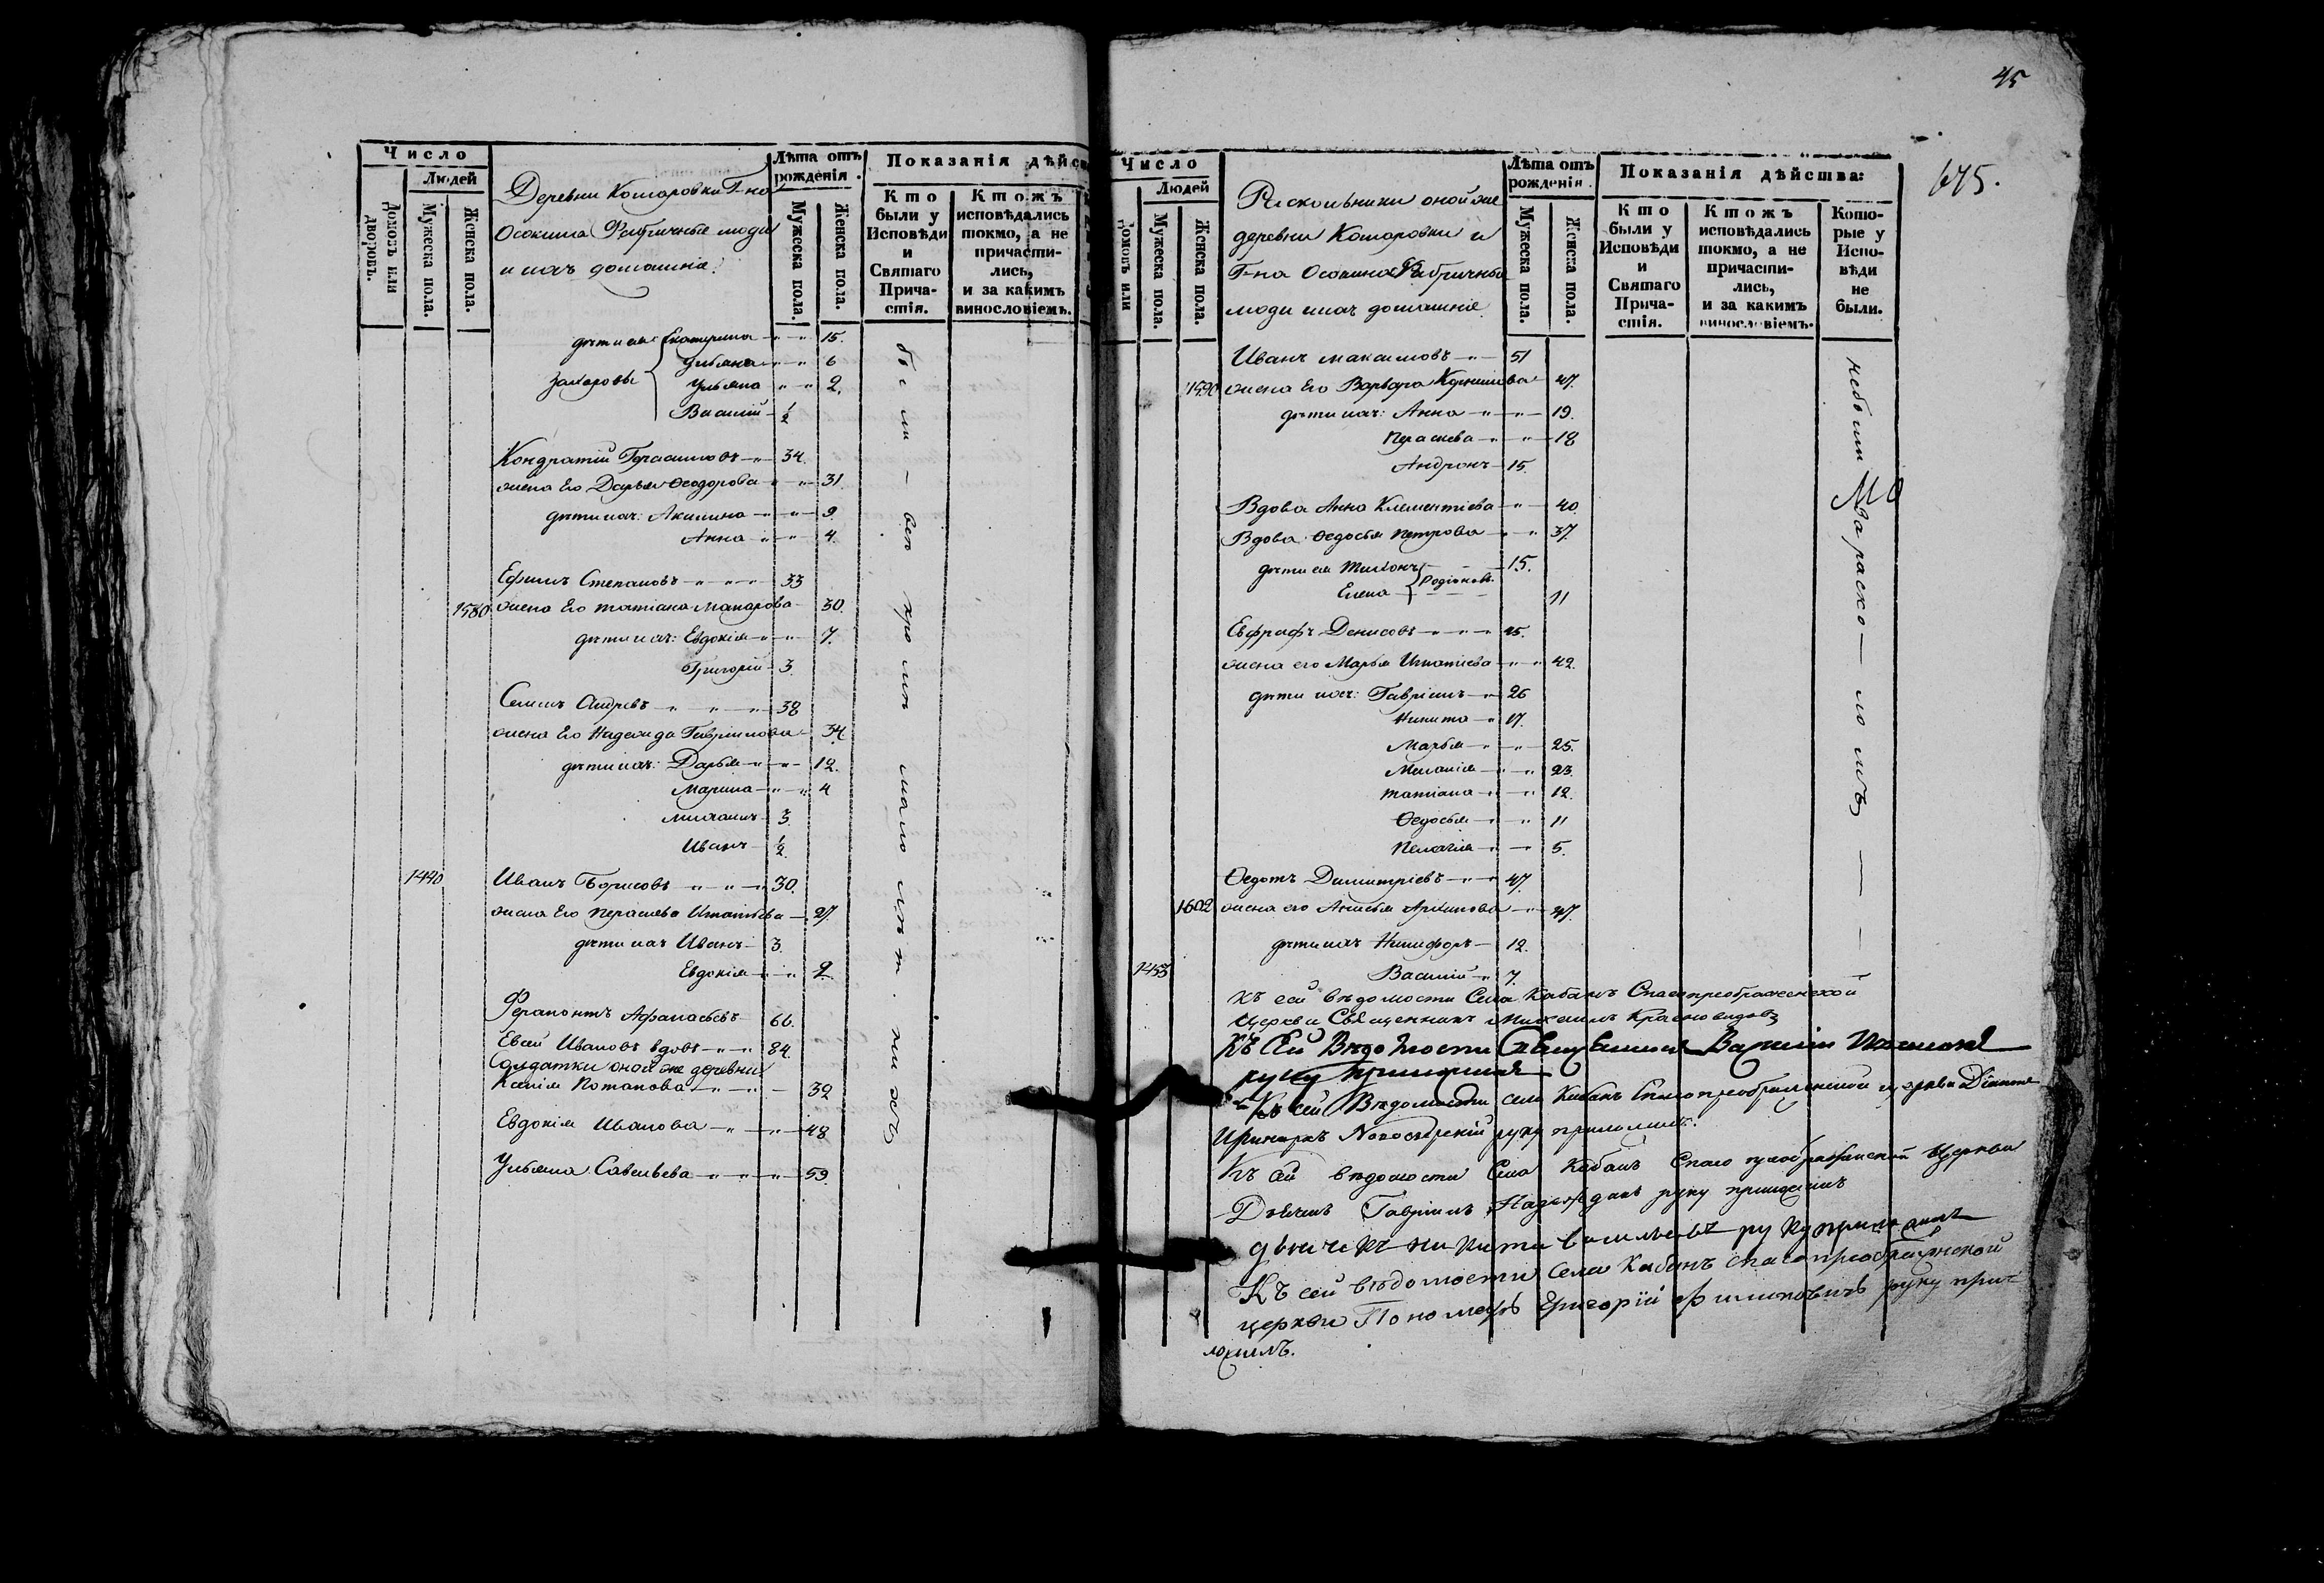 Число
Людей
Домовъ или дворовъ.
Мужеска пола.
Женска пола.
Деревни Комаровки Г-на
Осокина Фабричные люди
и ихъ домашніе.
Лѣта отъ рожденія.
Мужеска пола.
Женска пола.
Показанія дѣйс
Кто были у Исповѣди и Святаго Причастія.
Ктожъ исповѣдались токмо, а не причастились, и за какимъ винословіемъ.
дѣти ея Екатерина 15.
Захаровы
6
Ульяна 2.
Василій ½
Кондратій Герасимовъ 34.
жена Его Дарья Ѳеодорова 31.
дѣти ихъ: Акилина 9.
Анна 4.
Ефимъ Степановъ 33
1580 жена Его Татіана Макарова 30.
дѣти ихъ: Евдокія 7.
Григорій 3.
Андреевъ 38
жена Его Надежда Гавріилова 34.
дѣти ихъ: Дарья 12.
Марина 4
Михаилъ 3.
Иванъ ½
1440 Иванъ Борисовъ 30.
жена Его Пераскева Игнатьева 27.
дѣти ихъ Иванъ 3.
Евдокія 2.
Ферапонтъ Афанасьевъ 66.
Евсей Ивановъ вдовъ 84.
Солдатки оной же деревни
Ксенія Потапова 32
Евдокія Иванова 48
Ульяна Савельева 59.
были — всѣ кромѣ малолѣт. нихъ
45
675.
Число
Людей
Домовъ или
Мужеска пола.
Женска пола.
Раскольники оной же
деревни Комаровки и
Г-на Осокина Фабричныя
люди и ихъ домашніе
Лѣта отъ рожденія.
Мужеска пола.
Женска пола.
Показанія дѣйства:
Кто были у Исповѣди и Святаго Причастія.
Ктожъ исповѣдались токмо, а не причастились, и за какимъ винословіемъ.
Которые у Исповѣди не были.
Иванъ Максимовъ 51
1590 жена Его Варвара Корнилова 47.
дѣти ихъ: Анна 19.
Пераскева 18
Андронъ 15.
Вдова Анна Климентіева 40.
Вдова Ѳедосья Петрова 37.
дѣти ея Тихонъ 15.
Родіоновы
Елена 11
Евграфъ Денисовъ 45.
жена его Марья Игнатіева 42.
дѣти ихъ: Гавріилъ 26
Никита 17.
Марья 25.
Меланія 23.
Татіана 12.
Ѳедосья 11
Пелагія 5.
Ѳедотъ Димитріевъ 47.
1602 жена его Анисья Архипова 47.
дѣти ихъ Никифоръ 12.
1453 Василій 7.
небыли за расколомъ
Къ сей вѣдомости Села Кабанъ Спасопреображенской
Церкви Священникъ Михаилъ Красновидовъ
Къ Сей Вѣдомости Священникъ Василій
руку приложилъ
Къ сей Вѣдомости села Кабанъ Спасопреображенской церкви Діаконъ
руку приложилъ.
Къ сей вѣдомости Села Кабанъ Спасо преображенской Церкви
Дьячекъ Гавріилъ руку приложилъ
дьячекъ Никита Васильевъ руку приложилъ
Къ сей вѣдомости Села Кабанъ Спасопреображенской
церкви Пономарь Григорій Филиповичъ руку при-
ложилъ.